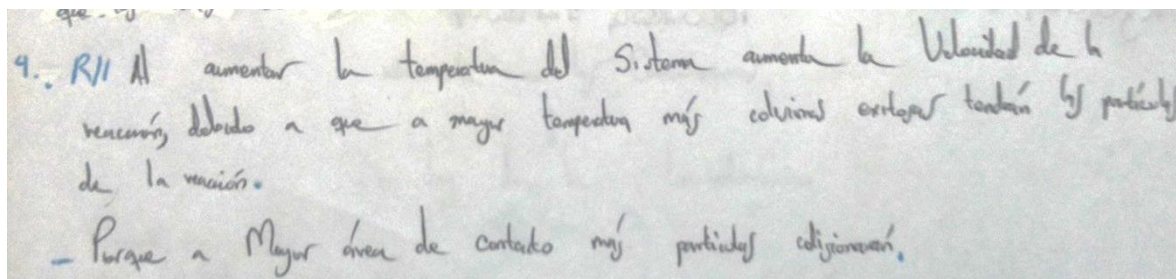 que las
9. R// Al aumentar la temperatura del Sistema aumenta la Velocidad de la
reacción, debido a que a mayor temperatura más colisiones exitosas tendrán las partículas
de la reacción.
- Porque a Mayor área de contacto más partículas colisionaran.